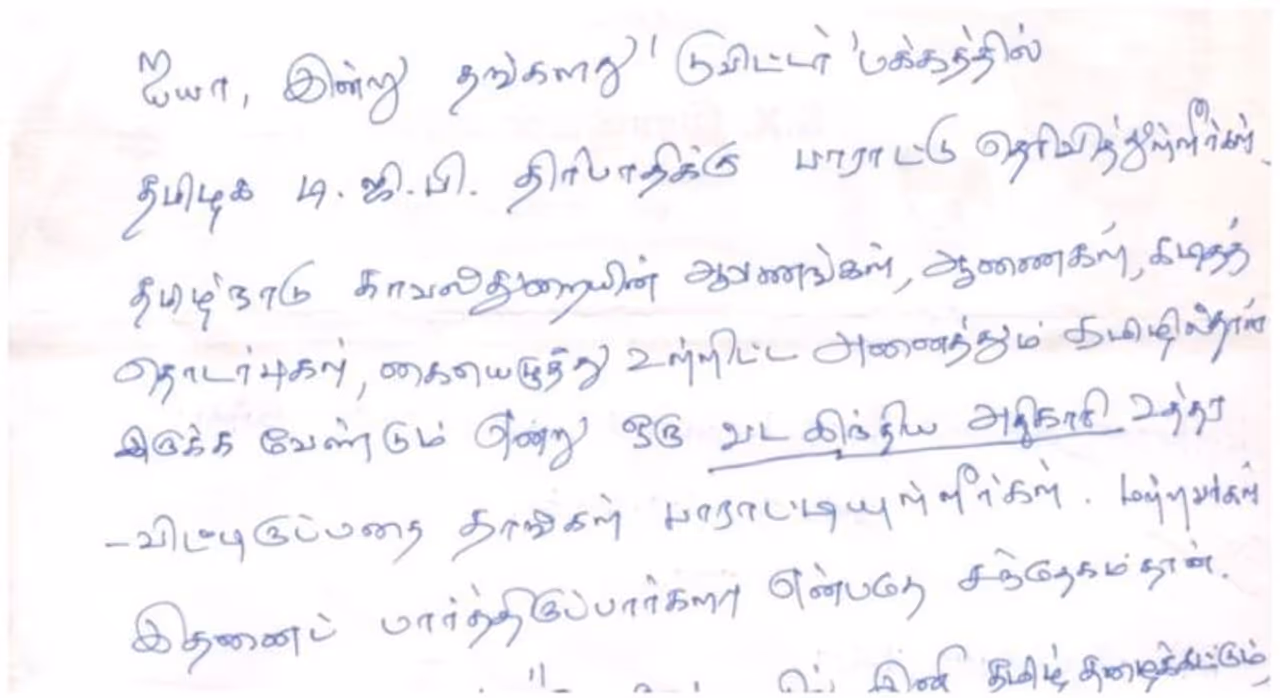 ஐயா, இன்று தங்களது 'டுவிட்டர்' பக்கத்தில்
தமிழக டி.ஜி.பி. திரிபாதிக்கு பாராட்டு தெரிவித்துள்ளீர்கள்.
தமிழ்நாடு காவல்துறையின் ஆவணங்கள், ஆணைகள், கடிதத்
தொடர்புகள், கையெழுத்து உள்ளிட்ட அனைத்தும் தமிழில்தான்
இருக்க வேண்டும் என்று ஒரு வட இந்திய அதிகாரி உத்தர
-விட்டிருப்பதை தாங்கள் பாராட்டியுள்ளீர்கள். மற்றவர்கள்
இதனைப் பார்த்திருப்பார்களா என்பதே சந்தேகம்தான்.
இனி தமிழ் தழைக்கட்டும்